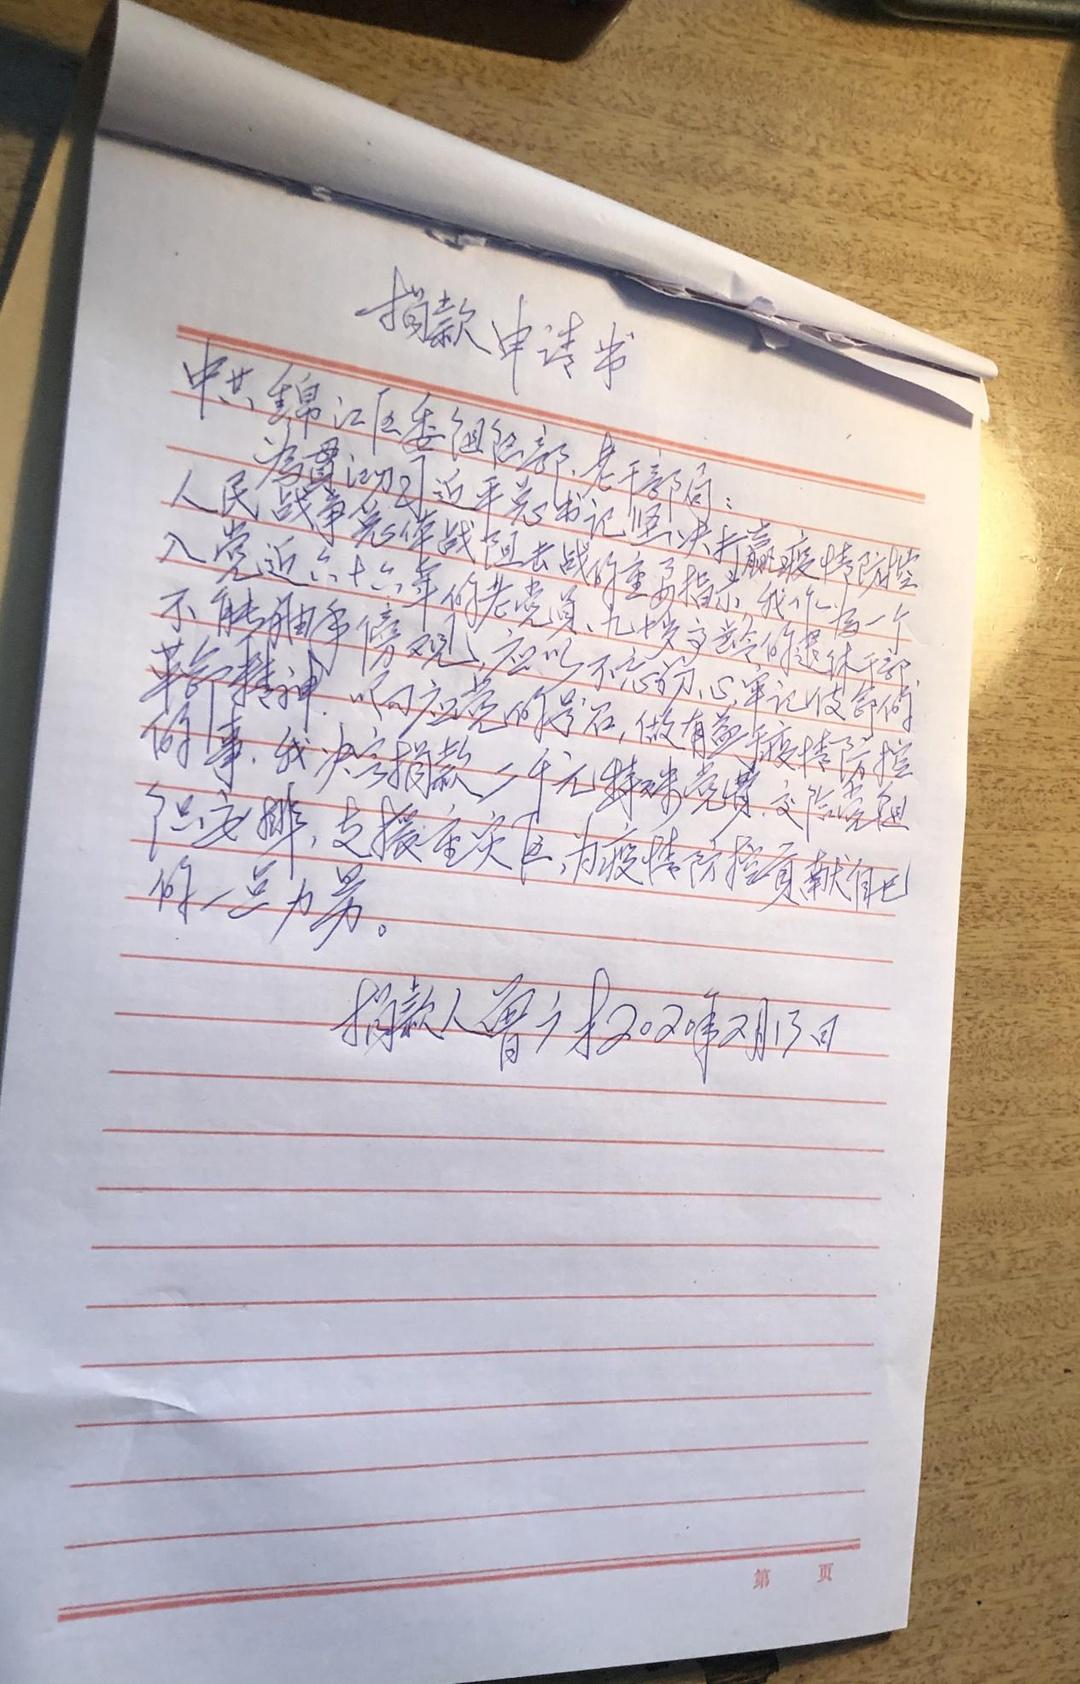 捐款申请书
中共锦江区委组织部、老干部局：
为贯彻习近平总书记坚决打赢疫情防控
人民战争总体战阻击战的重要指示，我作为一个
入党近六十六年的老党员、九十岁高龄的退休干部，
不能袖手傍观，应以不忘初心牢记使命的
革命精神，响应党的号召，做有益于疫情防控
的事，我决定捐款二千元特殊党费，交给党组
织安排，支援重灾区，为疫情防控贡献自己
的一点力量。
捐款人曾广才2020年2月13日
第 页